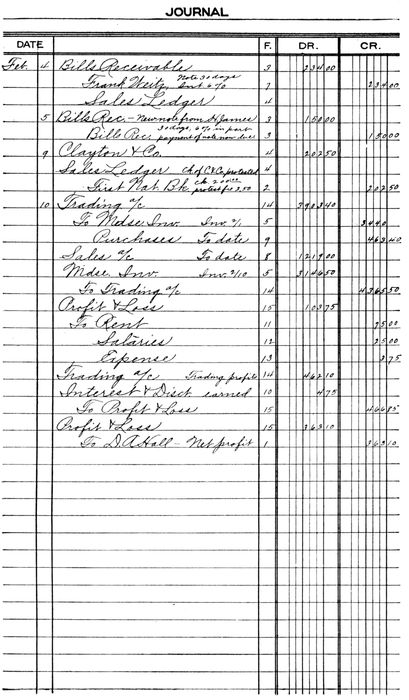 JOURNAL
DATE F. DR. CR.
Feb. 4 Bills Receivable 3 234 00
Frank Weitz, Note 30 days Int 6% 7 234 00
Sales Ledger 4
5 Bills Rec. - New note from H. James 3 150 00
Bills Rec. 30 days, 6% in part payment of note now due 3 150 00
9 Clayton & Co. 4 202 50
Sales Ledger Ck of C & Co. protested 4
First Nat. Bk. protest fee 2.50 2 202 50
10 Trading a/c 14 3903 40
To Mdse. Inv. Inv. 5 3440
Purchases To date 9 463 40
Sales a/c To date 8 1219 00
Mdse. Inv. Inv. 2/10 5 3146 50
To Trading a/c 14 4365 50
Profit & Loss 15 103 75
To Rent 11 75 00
Salaries 12 25 00
Expense 13 3 75
Trading a/c Trading profit 14 462 10
Interest & Disct earned 10 4 75
To Profit & Loss 15 466 85
Profit & Loss 15 363 10
To D. A. Hall - Net profit 1 363 10